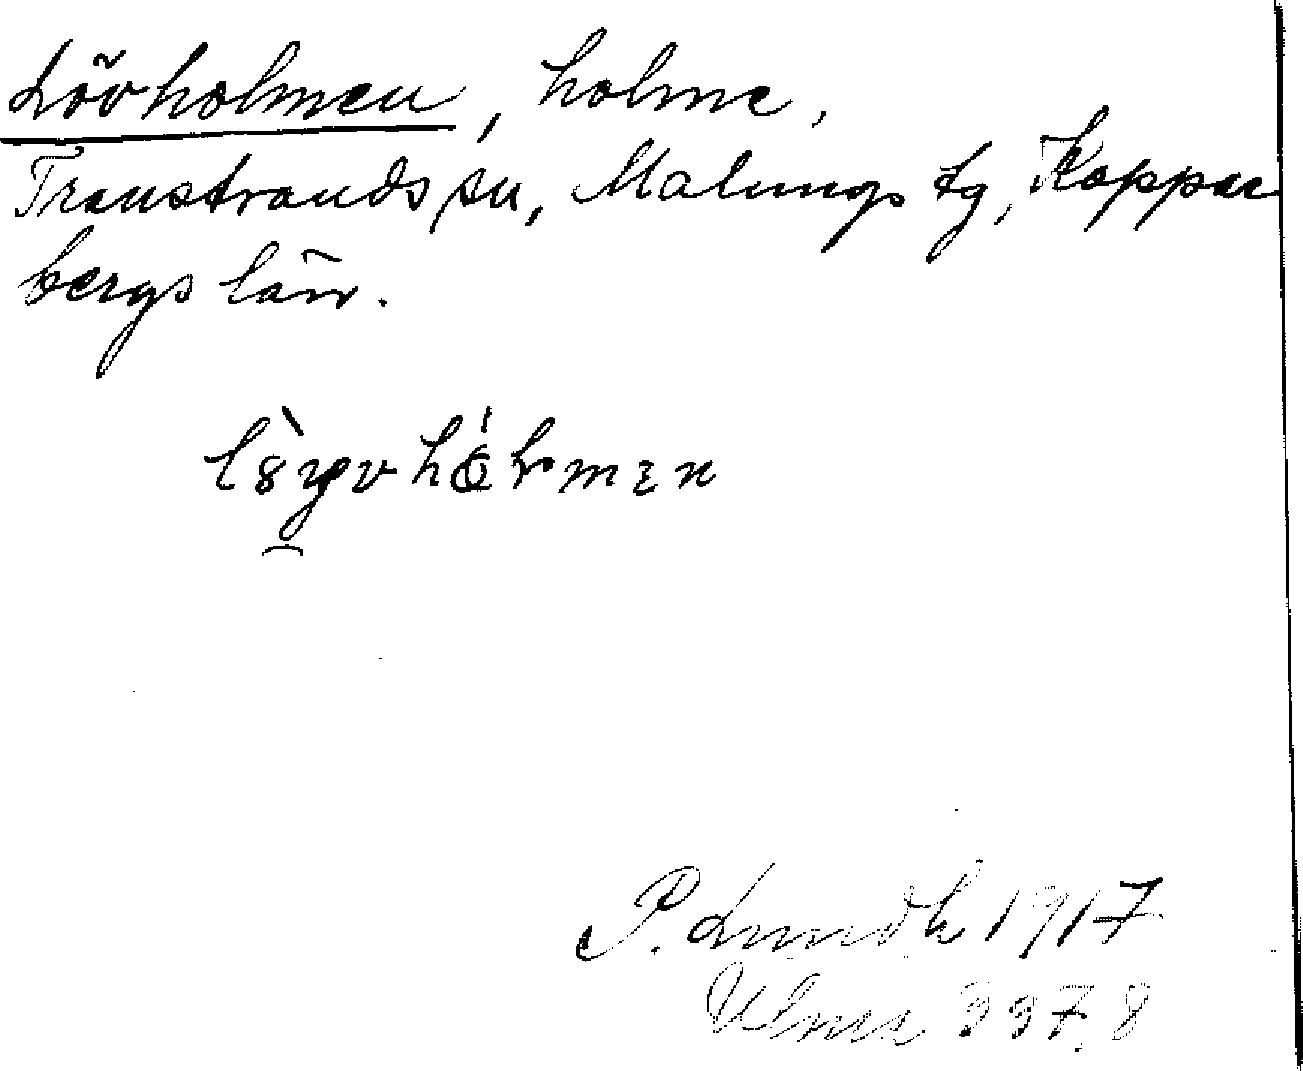 Lövholmen, holme,
Transtrands sn, Malungs tg, Koppar
bergs län.
P. Lundh 1917
Ulma 337:8